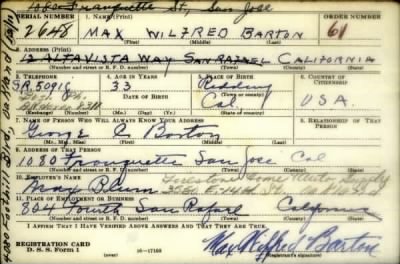 1080 Franquette St, San Jose
SERIAL NUMBER
ORDER NUMBER
2648 MAX WILFRED BARTON 61
2. ADDRESS (Print)
12 ALTAVISTA WAY SAN RAFAEL CALIFORNIA
(Number and street or R. F. D. number) (Town) (County) (State)
3. TELEPHONE 4. AGE IN YEARS 5. PLACE OF BIRTH 6. COUNTRY OF CITIZENSHIP
S.R. 5091J 33 Redding
DATE OF BIRTH
Cal. U.S.A.
(Exchange) (No.) (Mo.) (Day) (Yr.) (State or country)
7. NAME OF PERSON WHO WILL ALWAYS KNOW YOUR ADDRESS 8. RELATIONSHIP OF THAT PERSON
George Barton
(Mr., Mrs., Miss) (First) (Middle) (Last)
9. ADDRESS OF THAT PERSON
1080 Franquette San Jose Cal
(Number and street or R. F. D. number) (Town) (County) (State)
10. EMPLOYER'S NAME
Max Blum
11. PLACE OF EMPLOYMENT OR BUSINESS
804 Fourth San Rafael California
(Number and street or R. F. D. number) (Town) (County) (State)
I AFFIRM THAT I HAVE VERIFIED ABOVE ANSWERS AND THAT THEY ARE TRUE.
REGISTRATION CARD
D. S. S. Form 1 16—17105
Max Wilfred Barton
4080 Foothill Blvd, Oakland